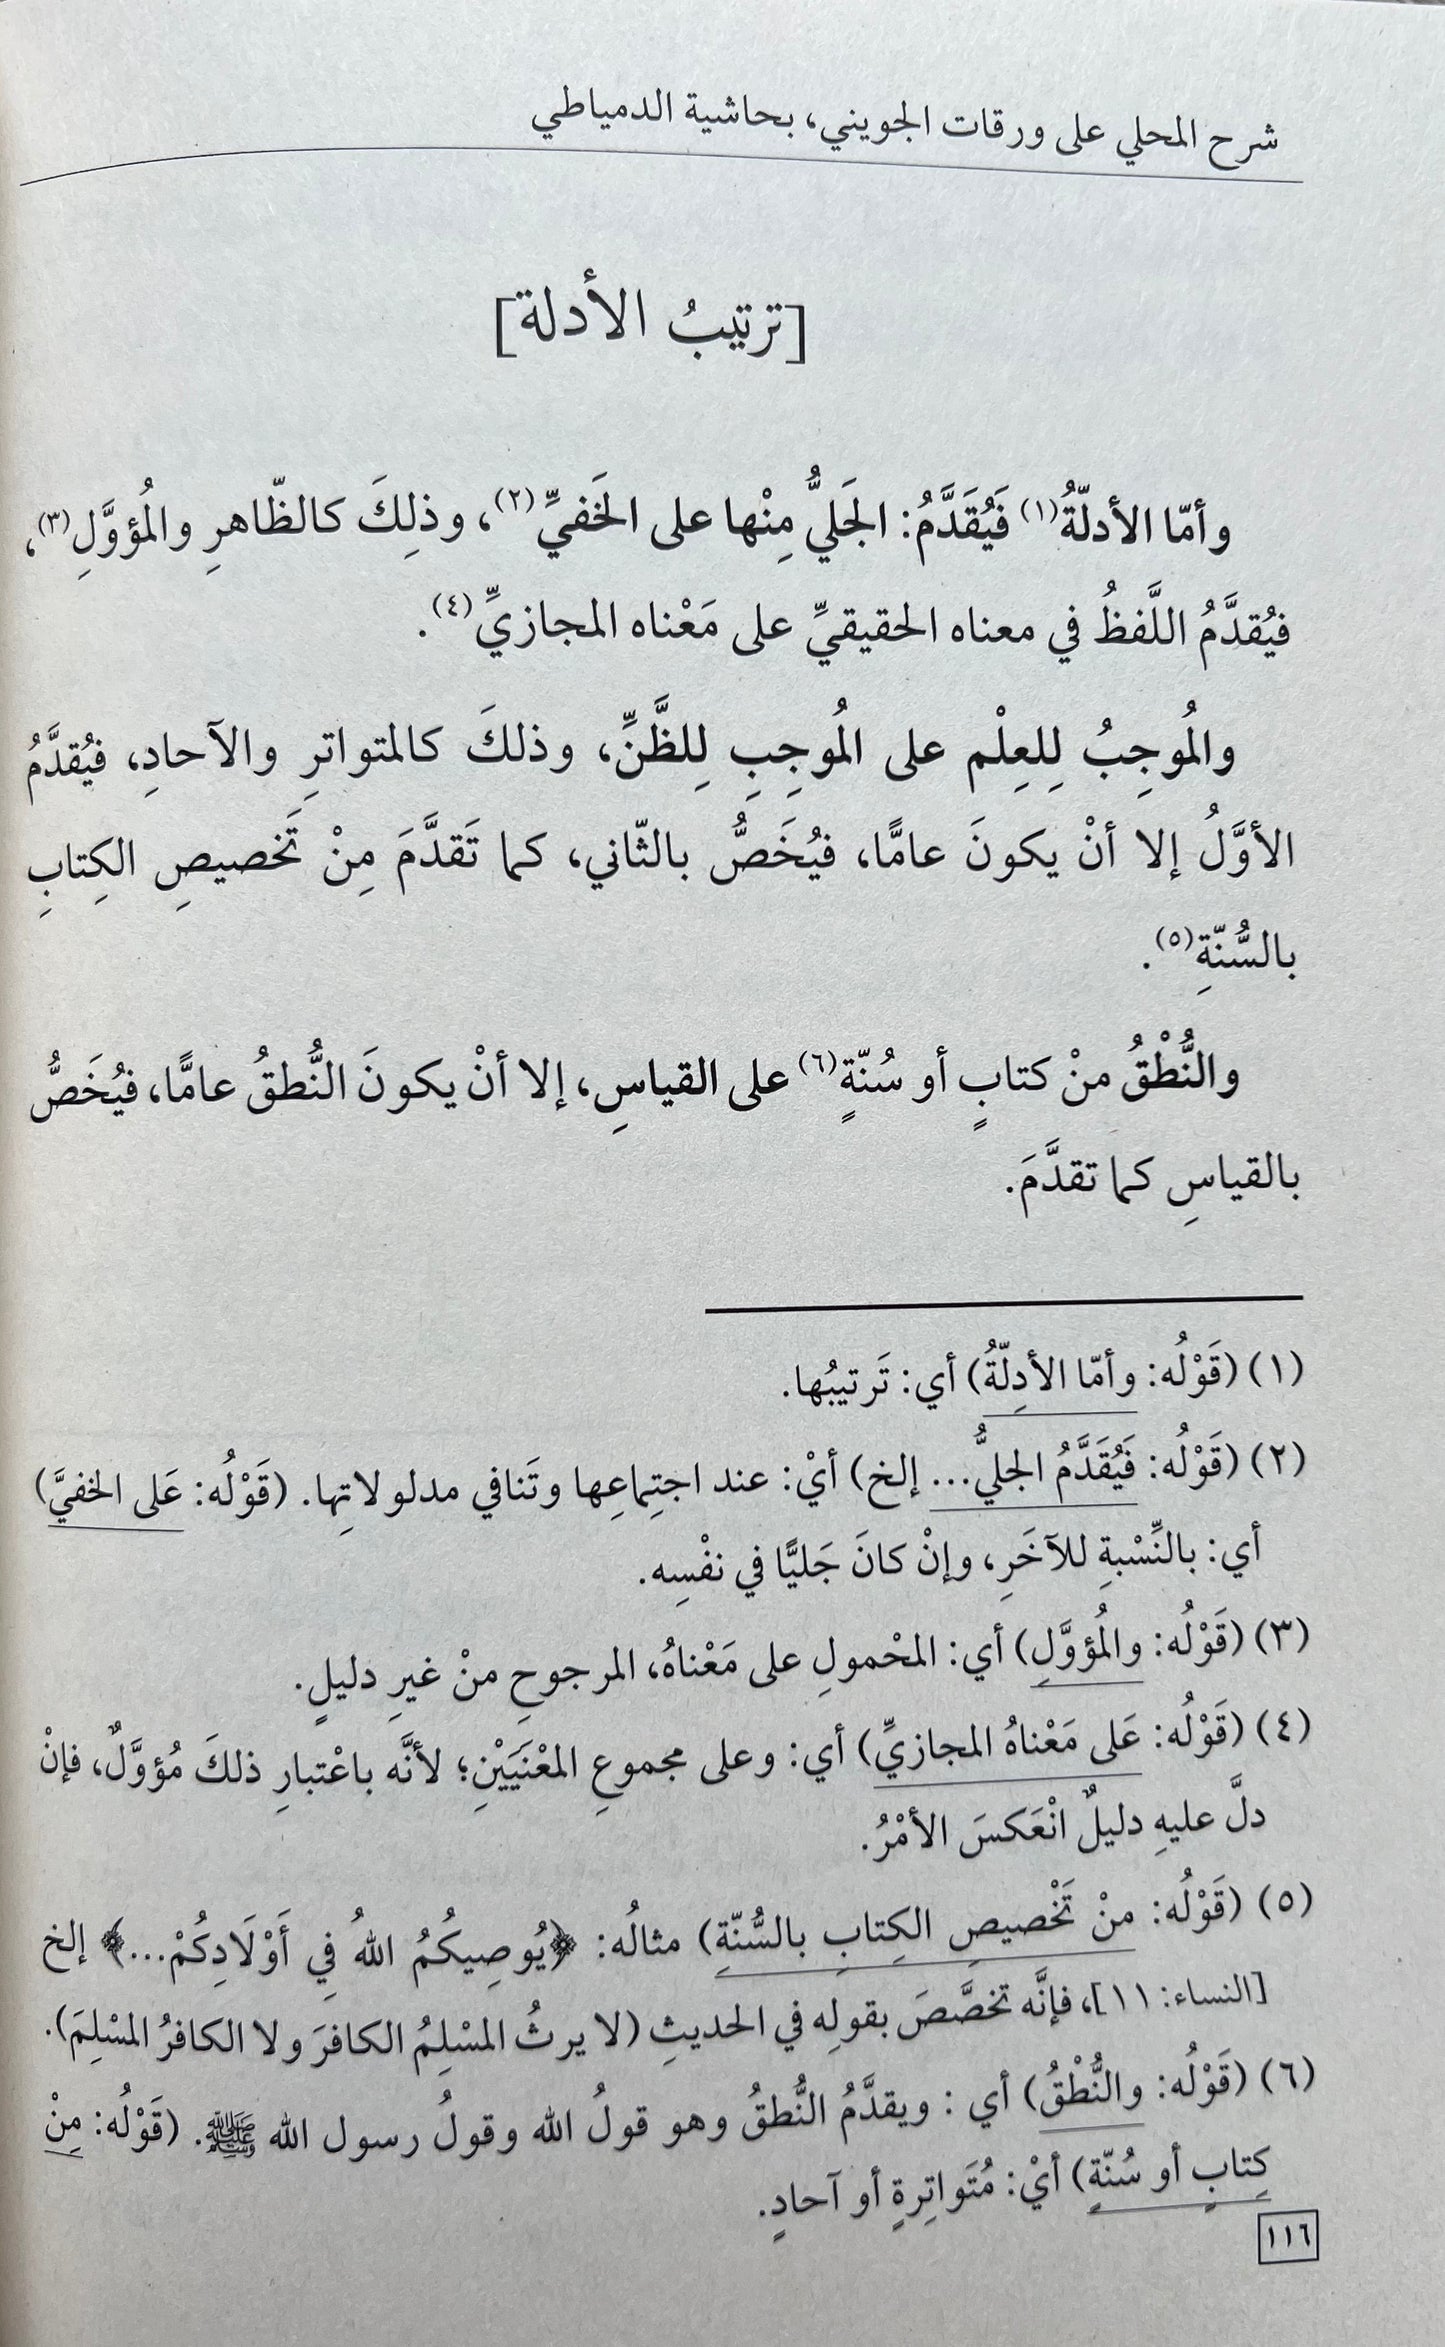 شرح المحلي على ورقات الجويني، بحاشية الدمياطي
[ترتيبُ الأدلة]
وأمّا الأدلّةُ(١) فَيُقَدَّمُ: الجَليُّ مِنْها على الخَفيِّ(٢)، وذلِكَ كالظّاهرِ والمُؤوَّلِ(٣)،
فيُقدَّمُ اللَّفظُ في معناه الحقيقيِّ على مَعْناه المجازيِّ(٤).
والمُوجِبُ لِلعِلْم على المُوجِبِ لِلظَّنِّ، وذلكَ كالمتواترِ والآحادِ، فيُقدَّمُ
الأوَّلُ إلا أنْ يكونَ عامًّا، فيُخَصُّ بالثّاني، كما تَقدَّمَ مِنْ تَخصيصِ الكِتابِ
بالسُّنّةِ(٥).
والنُّطْقُ منْ كتابٍ أو سُنّةٍ(٦) على القياسِ، إلا أنْ يكونَ النُّطقُ عامًّا، فيُخَصُّ
بالقياسِ كما تقدَّمَ.
(١) (قَوْلُه: وأمّا الأدِلّةُ) أي: تَرتيبُها.
(٢) (قَوْلُه: فَيُقَدَّمُ الجليُّ... إلخ) أيْ: عند اجتِماعِها وتَنافي مدلولاتِها. (قَوْلُه: عَلى الخفيَّ)
أي: بالنِّسْبةِ للآخَرِ، وإنْ كانَ جَليًّا في نفْسِه.
(٣) (قَوْلُه: والمُؤوَّلِ) أي: المحْمولِ على مَعْناهُ، المرجوحِ منْ غيرِ دليلٍ.
(٤) (قَوْلُه: عَلى مَعْناهُ المجازيِّ) أي: وعلى مجموعِ المعْنَيَيْنِ؛ لأنَّه باعْتبارِ ذلكَ مُؤوَّلٌ، فإنْ
دلَّ عليهِ دليلٌ انْعَكسَ الأمْرُ.
(٥) (قَوْلُه: منْ تَخْصيصِ الكِتابِ بالسُّنّةِ) مثالُه: ﴿يُوصِيكُمُ اللهُ فِي أَوْلَادِكُمْ...﴾ إلخ
[النساء: ١١]، فإنَّه تخصَّصَ بقولِه في الحديثِ (لا يرثُ المسْلِمُ الكافرَ ولا الكافرُ المسْلِمَ).
(٦) (قَوْلُه: والنُّطْقُ) أي : ويقدَّمُ النُّطقُ وهو قولُ الله وقولُ رسول الله ﷺ. (قَوْلُه: مِنْ
كِتابٍ أو سُنّةٍ) أيْ: مُتَواتِرةٍ أو آحادٍ.
١١٦